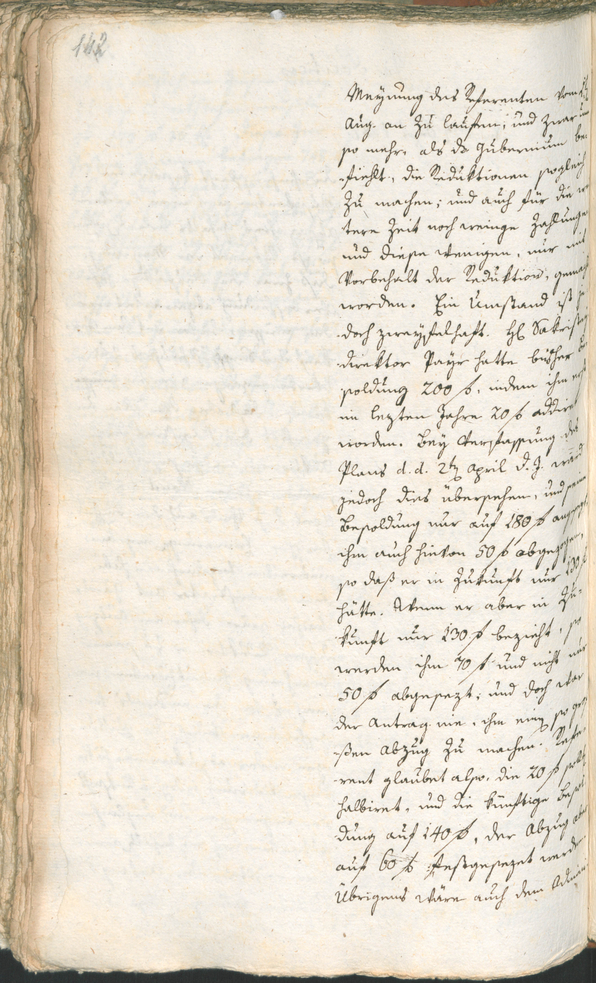 142
Meÿnung des Referenten vom
Aug. an zu laufen; und zwar um
so mehr, als das Gubernium be-
fiehlt, die Reduktionen sogleich
zu machen; und auch für die
tere Zeit noch wenige Zahlungen
und diese wenigen, nur mit
Vorbehalt der Reduktion, gemacht
worden. Ein Umstand ist
doch zweÿfelhaft. H
direktor Paÿr hatte bisher
soldung 200 f, indem ihm
im letzten Jahre 20 f addirt
worden. Beÿ Verfassung des
Plans d. d. 2t April d. J. ward
jedoch dies übersehen, und seine
Besoldung nur auf 180 f
ihm auch hievon 50 f abgezogen,
so daß er in Zukunft nur 130 f
hätte. Wenn er aber in Zu-
kunft nur 130 f bezieht, so
werden ihm 70 f und nicht nur
50 f abgesezt; und doch war
der Antrag nie, ihm einen so gro-
ßen Abzug zu machen. Refe-
rent glaubet also, die 20 f sollen
halbiret, und die künftige Besol-
dung auf 140 f, der Abzug aber
auf 60 f festgesezet werden.
Übrigens wäre auch dem